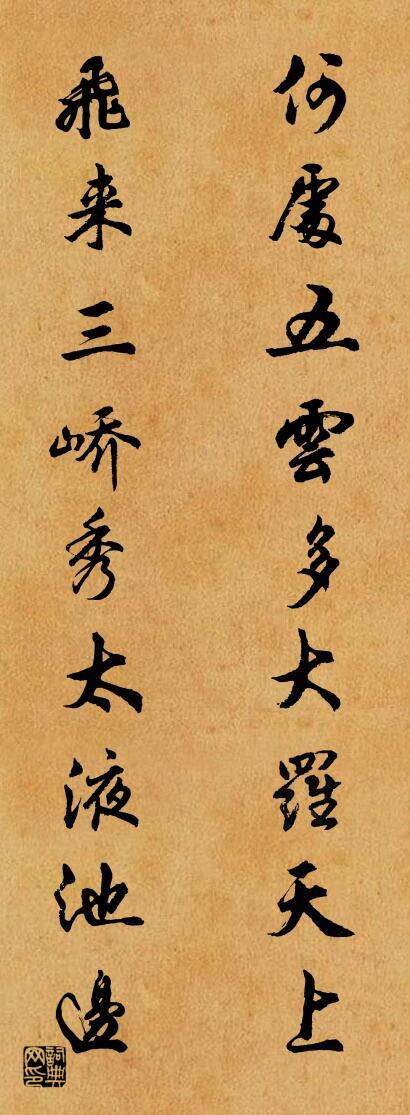 何處五雲多大羅天上
飛来三峤秀太液池邊
詞典网印